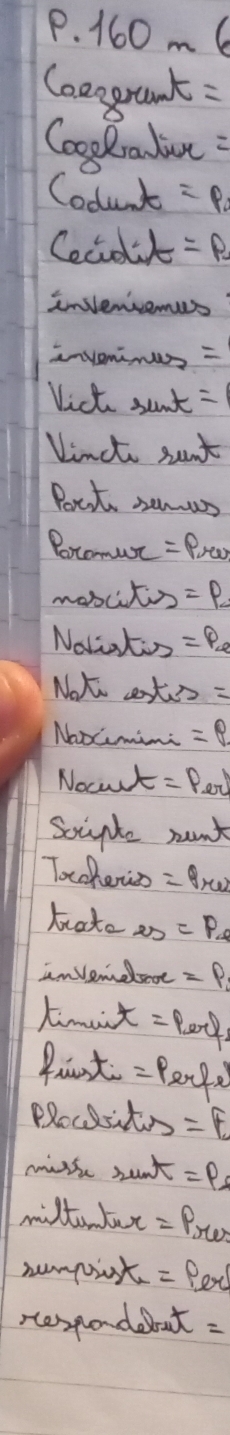 P. 160 n 6
Coegerunt =
Cogebantur =
Cadunt = P.
Cecidit = P
inveniemus
invenimus =
Victi sunt =
Vincti sunt
Parati sumus
Paramur = Pres
nascitis = P.
Novistis = Pe
Nati estis =
Nascimini = P.
Nocuit = Perf
Scripta sunt
Traheris = Pres
tracta es = Pe
inveniebar = P.
timuit = Perf
fuisti = Perfe
Placebitis = F
missi sunt = Pe
mittuntur = Pres
sumpsisti = Perf
respondebit =